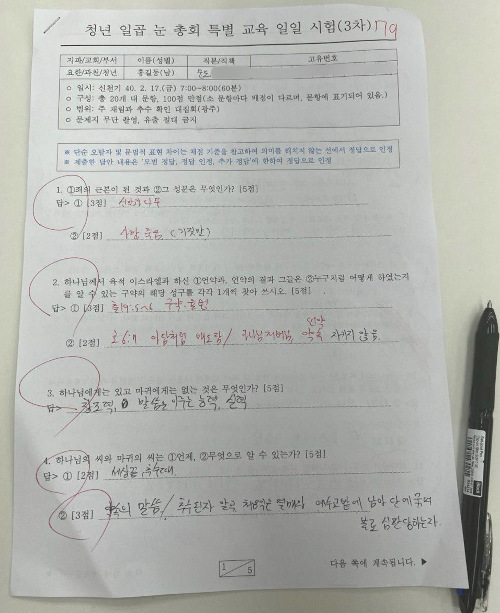 청년 일곱 눈 총회 특별 교육 일일 시험(3차) 79
지파/교회/부서 이름(성별) 직분/직책 고유번호
요한/과천/청년 홍길동(남)
○ 일시: 신천기 40. 2. 17.(금) 7:00~8:00(60분)
○ 구성: 총 20개 내 문항, 100점 만점(소 문항마다 배점이 다르며, 문항에 표기되어 있음.)
○ 범위: 주 재림과 추수 확인 대집회(광주)
○ 문제지 무단 촬영, 유출 절대 금지
※ 단순 오탈자 및 유범적 표현 차이는 채점 기준을 참고하여 의미를 해치지 않는 선에서 정답으로 인정
※ 제출한 답안 내용은 '모범 정답, 정답 인정, 추가 정답'에 한하여 정답으로 인정
1. ①죄의 근본이 된 것과 ②그 성분은 무엇인가? [5점]
답> ① [3점] 선악나무
② [2점] 사망 죽음 (거짓말)
2. 하나님께서 육적 이스라엘과 하신 ①언약과, 언약의 결과 그들은 ②누구처럼 어떻게 하였는지
를 알 수 있는 구약의 해당 성구를 각각 1개씩 찾아 쓰시오. [5점]
답> ① [3점] 출19:5~6 구약
언약
② [2점] 호6:7 아담처럼 지키지 않음
3. 하나님에게는 있고 마귀에게는 없는 것은 무엇인가? [5점]
답> 창조력, 말씀을 이루는 능력, 실력
4. 하나님의 씨와 마귀의 씨는 ①언제, ②무엇으로 알 수 있는가? [5점]
답> ① [2점] 세상끝, 추수때
② [3점] 약속의 말씀/ 추수되자 않고 남아 단에 묶여
불로 심판 당하는자.
1/5
다음 쪽에 계속됩니다. ▶